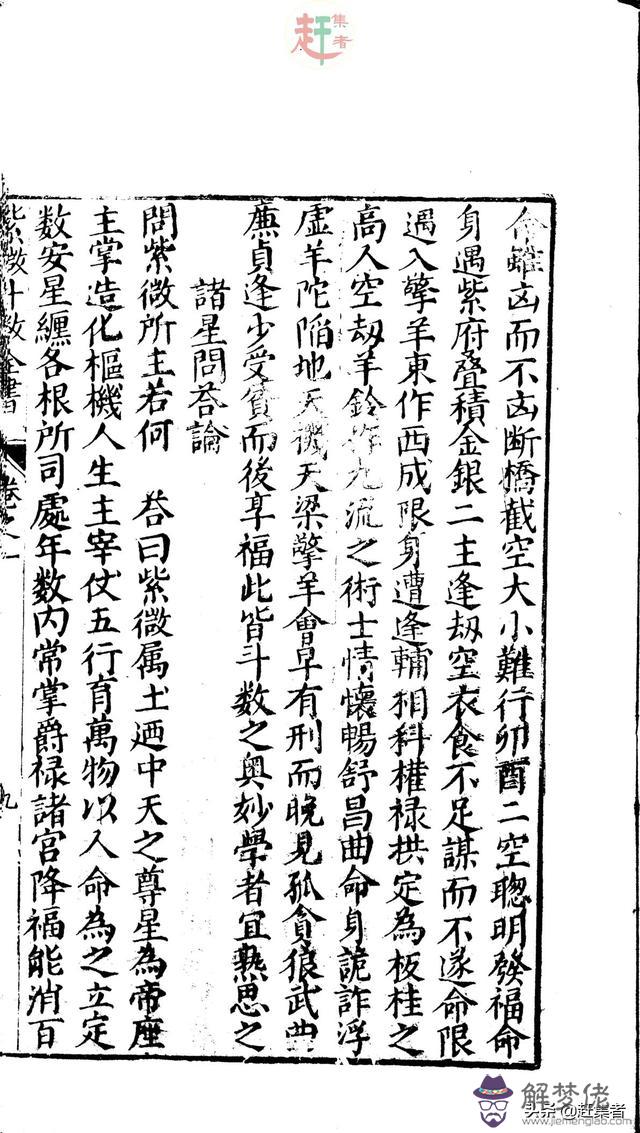 赶集者
命雖凶而不凶断橋截空大小難行卯酉二空聰明發福命
身遇紫府叠積金銀二主逢刼空衣食不足謀而不遂命限
遇入擎羊東作西成限身遭逢輔相科權禄拱定為板桂之
高人空刼羊鈴作九流之術士情懷暢舒昌曲命身詭詐浮
虚羊陀陷地天機天梁擎羊會早有刑而晚見孤貪狼武曲
亷貞逢少受貧而後享福此皆斗数之奥妙學者宜熟思之
諸星問荅論
問紫微所主若何 荅曰紫微属土廼中天之尊星為帝座
主掌造化樞機人生主宰仗五行育萬物以人命為之立定
数安星纏各根所司處年数内常掌爵禄諸宮降福能消百
紫微斗数全書 卷之一 九
解梦佬
www.jiemenglao.com
头条@赶集者